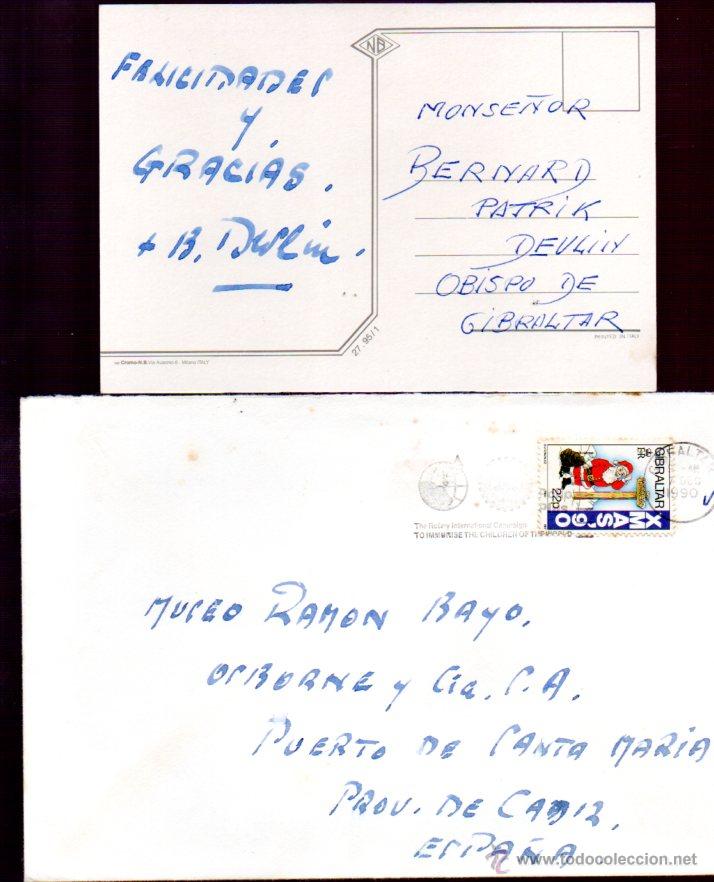 FELICIDADES
Y
GRACIAS.
+ B. Devlin.
NB
MONSEÑOR
BERNARD
PATRIK
DEVLIN
OBISPO DE
GIBRALTAR
PRINTED IN ITALY
27.95/1
Cromo-N.B. Via Ausonio 6 - Milano ITALY
GIBRALTAR
22p
XMAS'90
1990
The Rotary International Campaign
TO IMMUNISE THE CHILDREN OF THE WORLD
MUSEO RAMON BAYO,
OSBORNE y Cia. S.A.
PUERTO DE SANTA MARIA
PROV. DE CADIZ,
ESPAÑA
www.todocoleccion.net